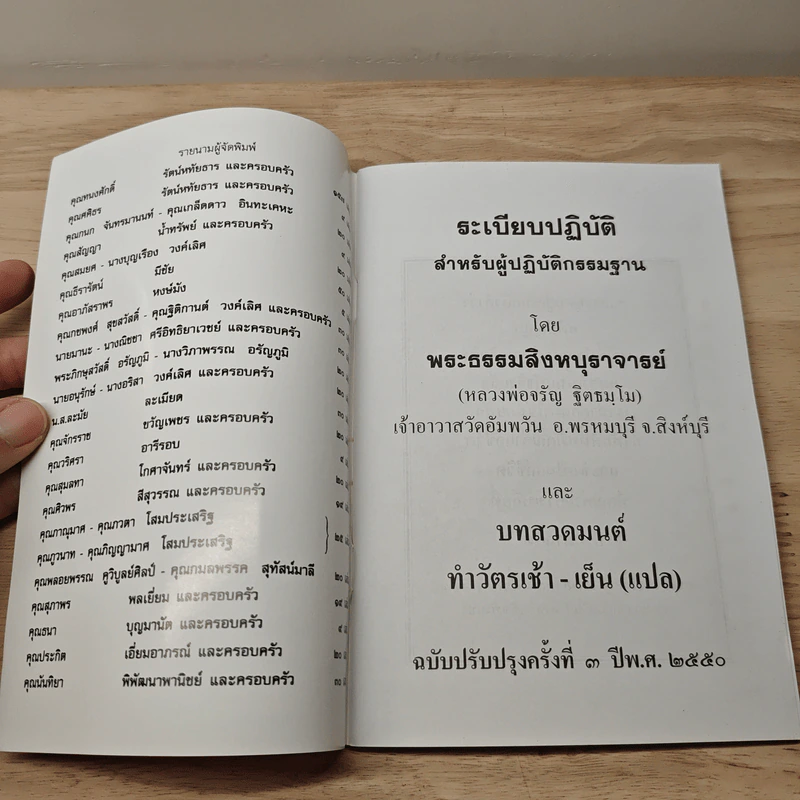 รายนามผู้จัดพิมพ์
คุณทนงศักดิ์ รัตน์หทัยธาร และครอบครัว
คุณศศิธร รัตน์หทัยธาร และครอบครัว
คุณกนก จันทรมานนท์ - คุณเกล็ดดาว อินทะเคหะ
คุณสัญญา น้ำทรัพย์ และครอบครัว
คุณสมยศ - นางบุญเรือง วงค์เลิศ
คุณธีรารัตน์ มีชัย
คุณอาภัสราพร หงษ์มัง
คุณกชพงศ์ สุขสวัสดิ์ - คุณฐิติกานต์ วงค์เลิศ และครอบครัว
นายมานะ - นางณิชชา ศรีอิทธิยาเวชย์ และครอบครัว
พระภิกษุสวัสดิ์ อรัญภูมิ - นางวิภาพรรณ อรัญภูมิ
นายอนุรักษ์ - นางอริสา วงค์เลิศ และครอบครัว
น.ส.ละมัย ละเมียด
คุณจักรราช ขวัญเพชร และครอบครัว
คุณวริศรา อารีรอบ
คุณสุมลทา โกศาจันทร์ และครอบครัว
คุณศิวพร สีสุวรรณ และครอบครัว
คุณภาณุมาศ - คุณภวตา โสมประเสริฐ
คุณภูวนาท - คุณภิญญามาศ โสมประเสริฐ
คุณพลอยพรรณ คูวิบูลย์ศิลป์ - คุณกมลพรรค สุทัสน์มาลี
คุณสุภาพร พลเยี่ยม และครอบครัว
คุณธนา บุญมานัต และครอบครัว
คุณประกิต เอี่ยมอาภรณ์ และครอบครัว
คุณนันทิยา พิพัฒนาพานิชย์ และครอบครัว
ระเบียบปฏิบัติ
สำหรับผู้ปฏิบัติกรรมฐาน
โดย
พระธรรมสิงหบุราจารย์
(หลวงพ่อจรัญ ฐิตธมฺโม)
เจ้าอาวาสวัดอัมพวัน อ.พรหมบุรี จ.สิงห์บุรี
และ
บทสวดมนต์
ทำวัตรเช้า - เย็น (แปล)
ฉบับปรับปรุงครั้งที่ ๓ ปีพ.ศ. ๒๕๕๐